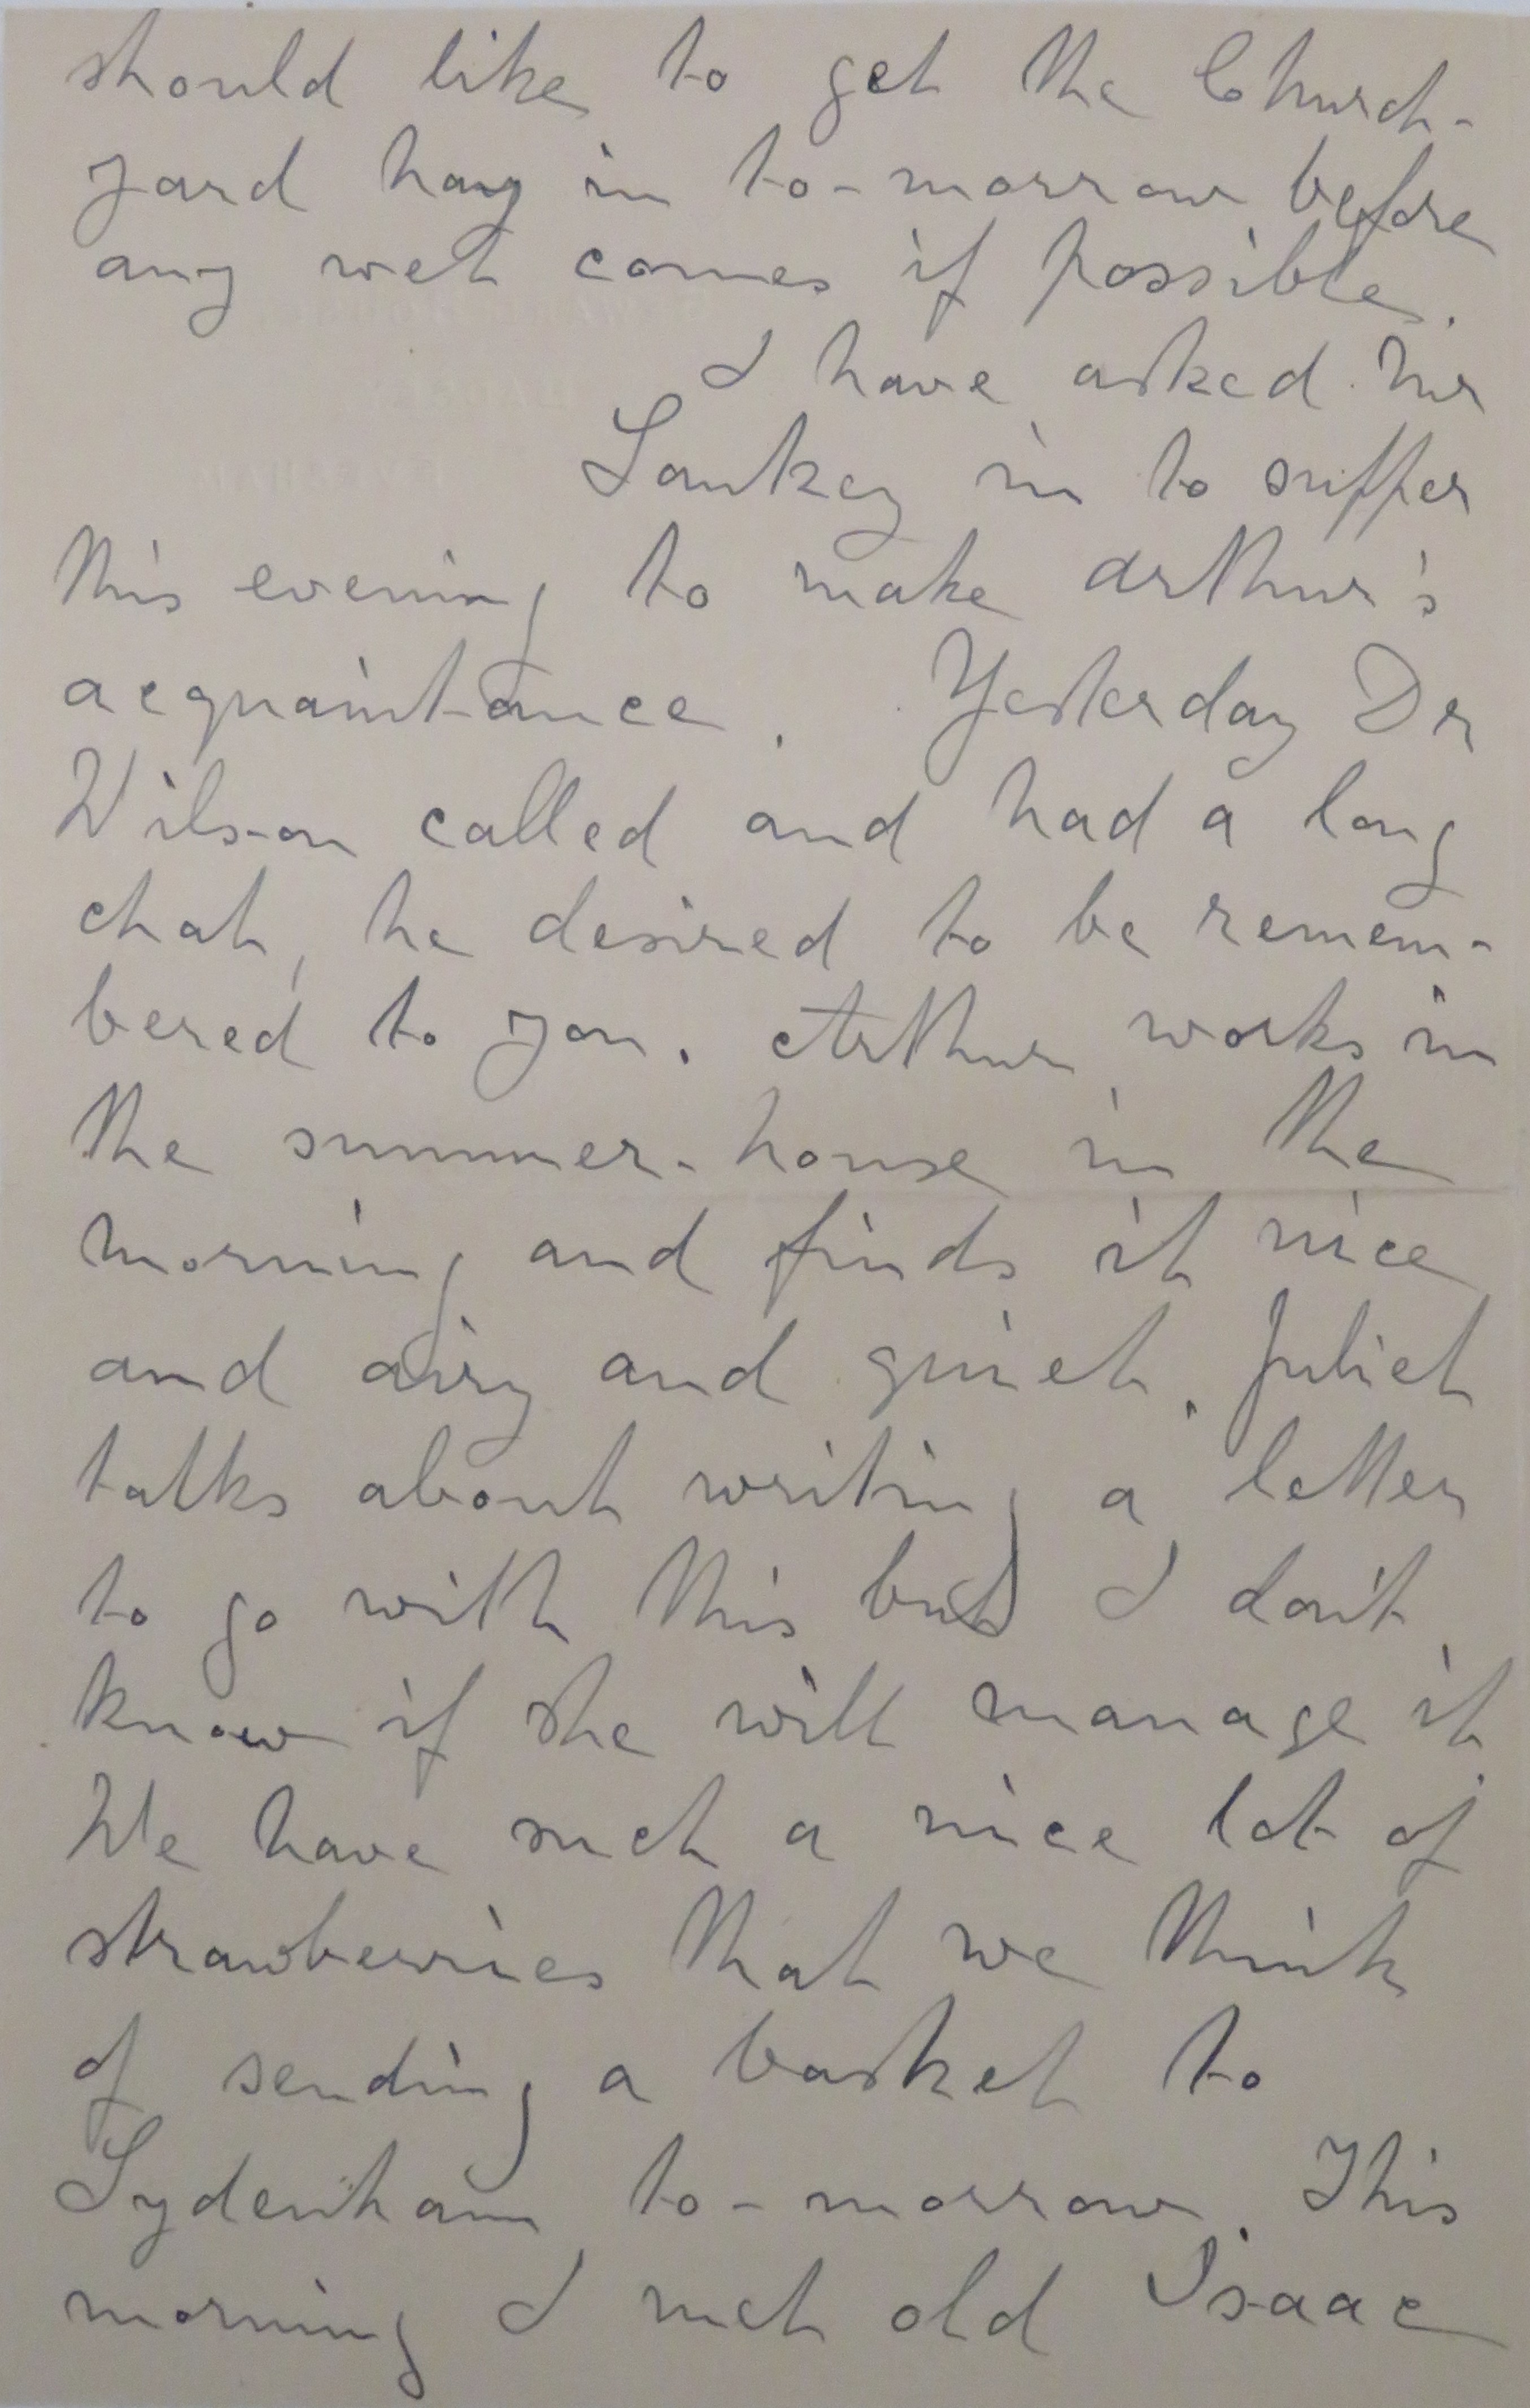 should like to get the Church-
yard hay in to-morrow before
any wet comes if possible.
I have asked Mr
Sankey in to supper
this evening to make Arthur's
acquaintance. Yesterday Dr
Wilson called and had a long
chat, he desired to be remem-
bered to you. Arthur works in
the summer-house in the
morning and finds it nice
and airy and quiet. Juliet
talks about writing a letter
to go with this but I don't
know if she will manage it.
We have such a nice lot of
strawberries that we think
of sending a basket to
Sydenham to-morrow. This
morning I met old Isaac